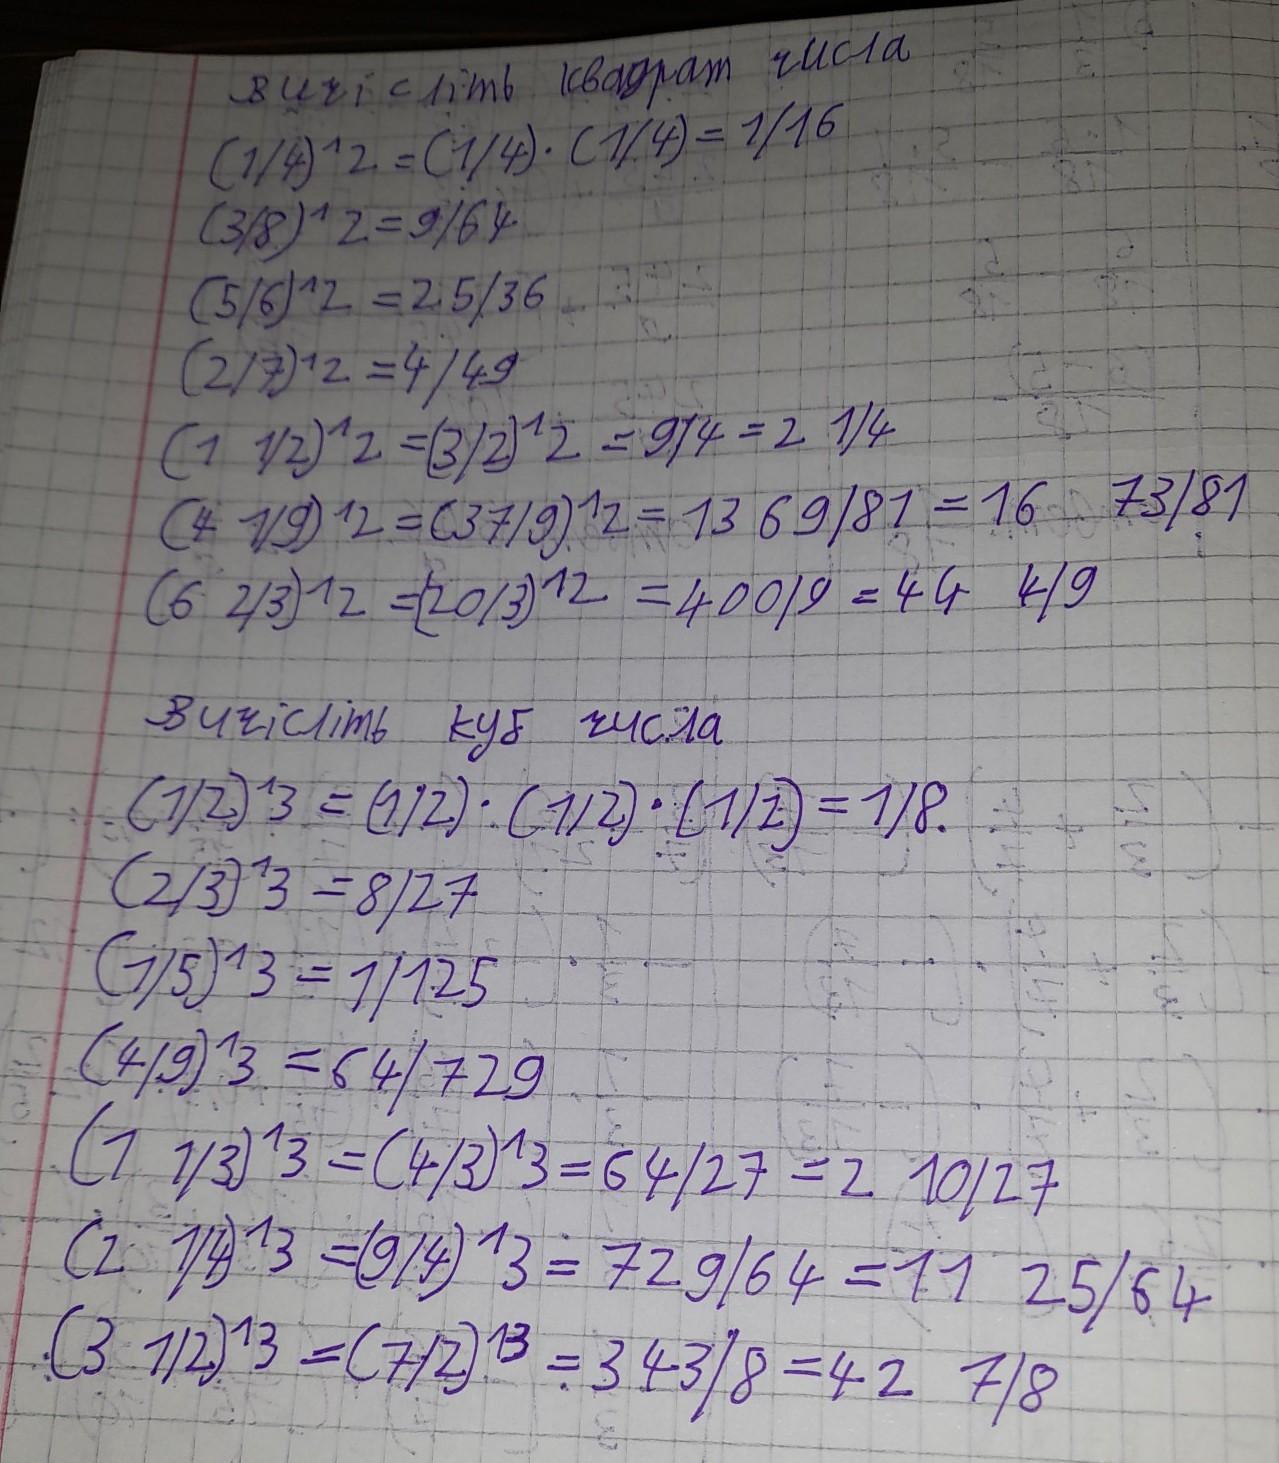 Вичісліть квадрат числа
(1/4)^2 = (1/4) · (1/4) = 1/16
(3/8)^2 = 9/64
(5/6)^2 = 25/36
(2/7)^2 = 4/49
(1 1/2)^2 = (3/2)^2 = 9/4 = 2 1/4
(4 1/9)^2 = (37/9)^2 = 1369/81 = 16 73/81
(6 2/3)^2 = (20/3)^2 = 400/9 = 44 4/9
Вичісліть куб числа
(1/2)^3 = (1/2) · (1/2) · (1/2) = 1/8.
(2/3)^3 = 8/27
(1/5)^3 = 1/125
(4/9)^3 = 64/729
(1 1/3)^3 = (4/3)^3 = 64/27 = 2 10/27
(2 1/4)^3 = (9/4)^3 = 729/64 = 11 25/64
(3 1/2)^3 = (7/2)^3 = 343/8 = 42 7/8